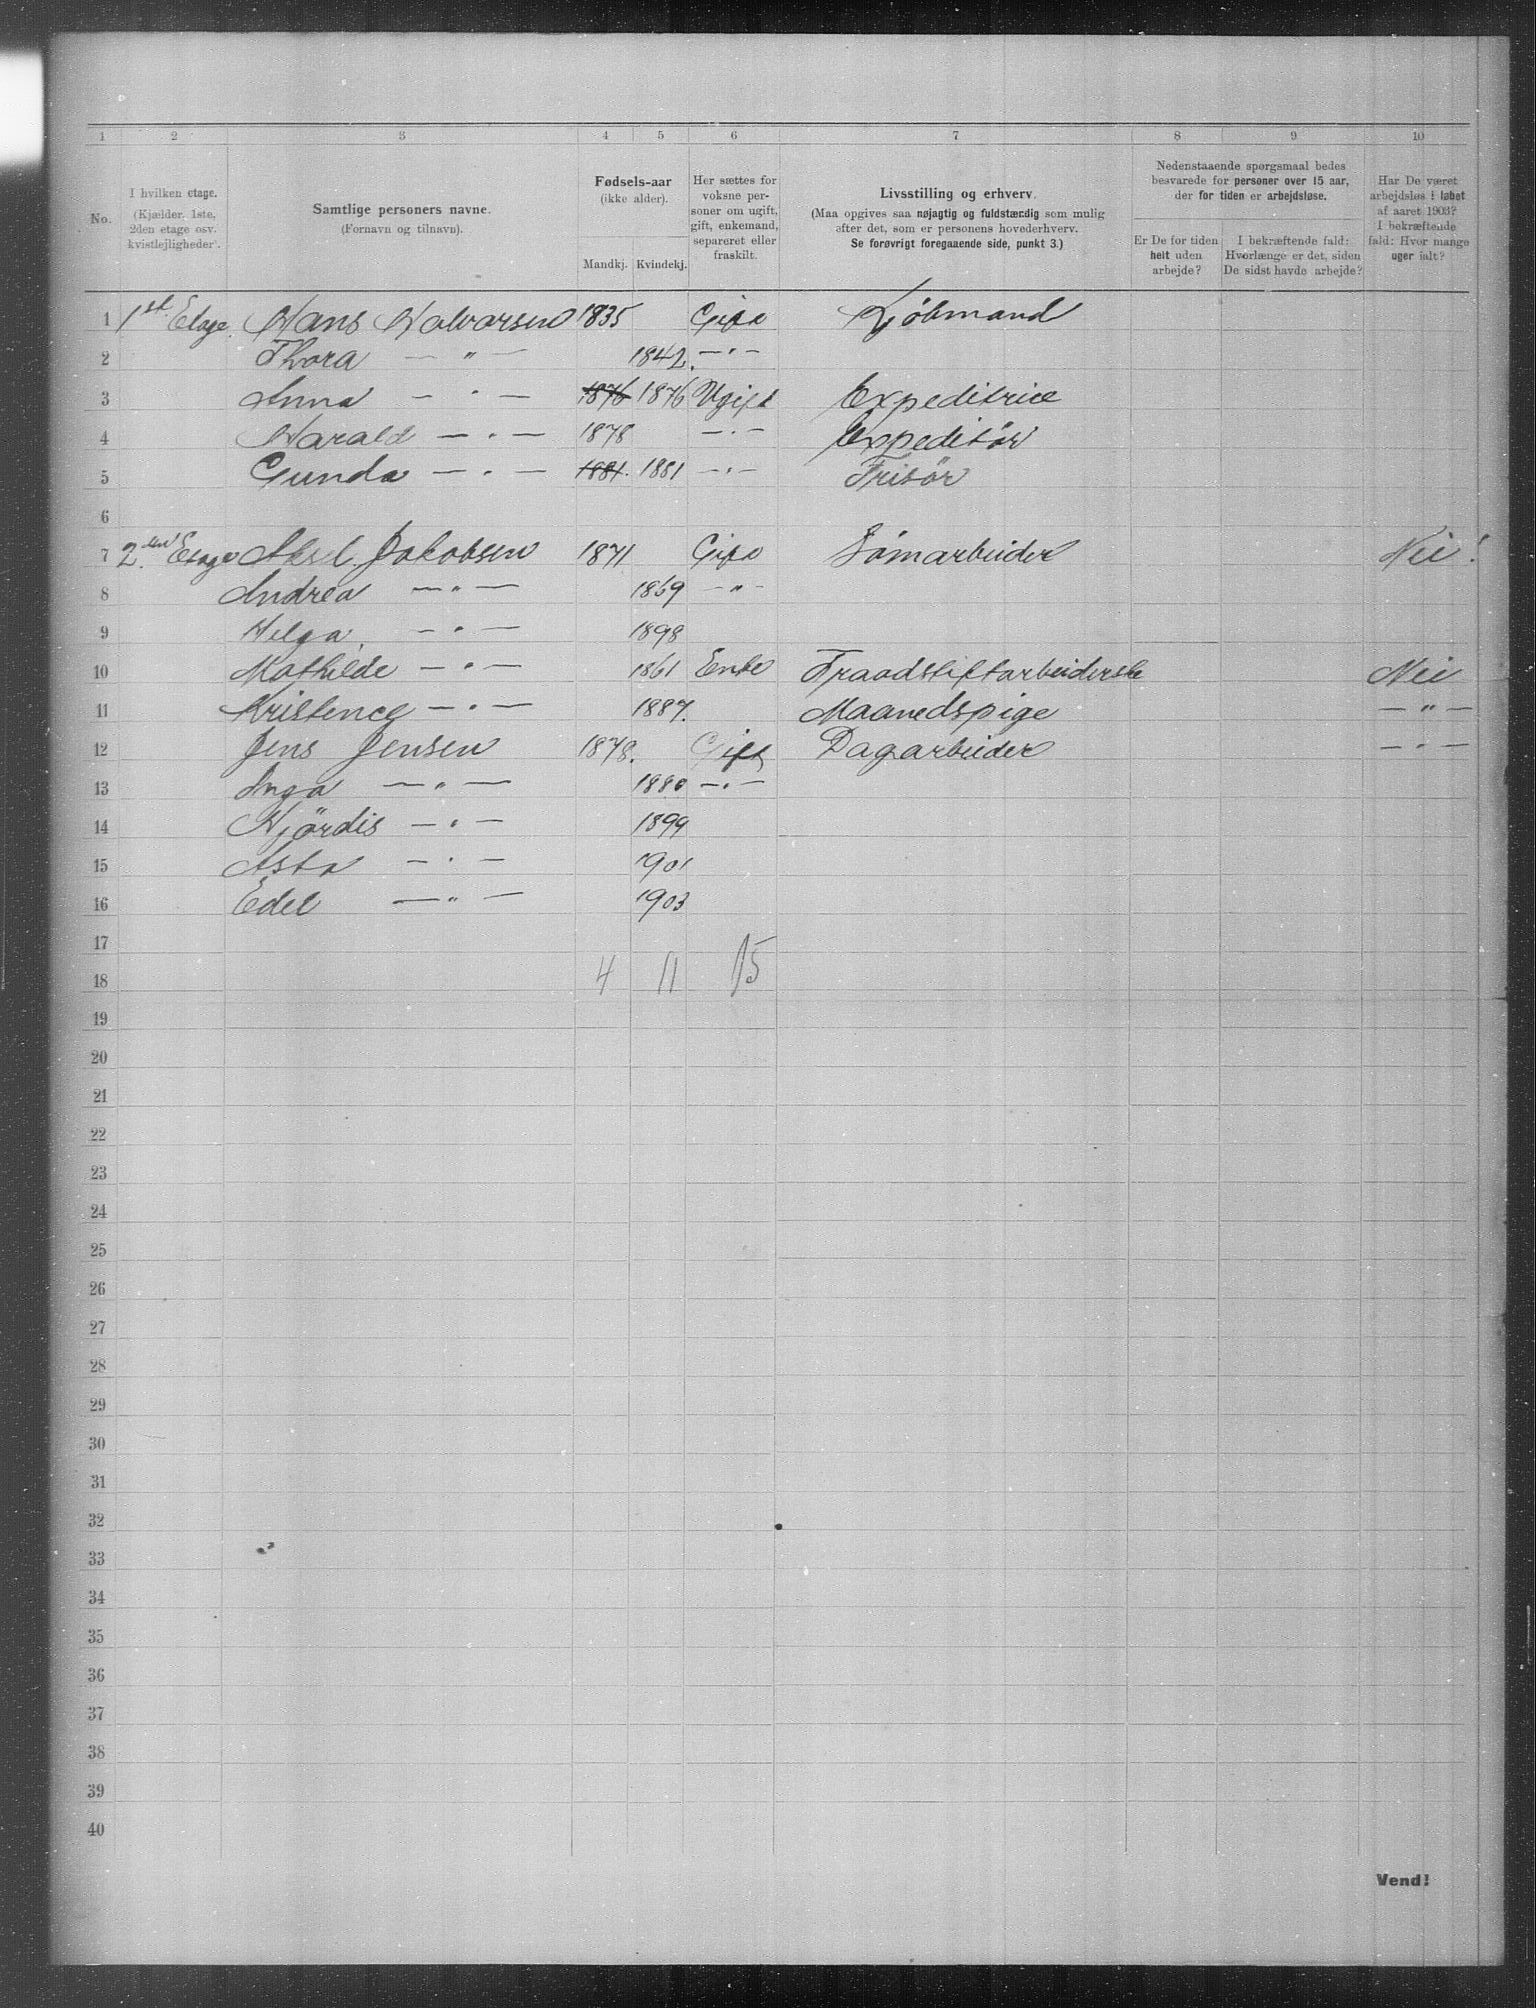 1 2 3 4 5 6 7 8 9 10
No.
I hvilken etage.
(Kjælder, 1ste, 2den etage osv. kvistlejligheder).
Samtlige personers navne.
(Fornavn og tilnavn).
Fødsels-aar
(ikke alder).
Mandkj. Kvindekj.
Her sættes for voksne personer om ugift, gift, enkemand, separeret eller fraskilt.
Livsstilling og erhverv.
(Maa opgives saa nøjagtig og fuldstændig som mulig efter det, som er personens hovederhverv.
Se forøvrigt foregaaende side, punkt 3.)
Nedenstaaende spørgsmaal bedes besvarede for personer over 15 aar, der for tiden er arbejdsløse.
Er De for tiden helt uden arbejde?
I bekræftende fald: Hvorlænge er det, siden De sidst havde arbejde?
Har De været arbejdsløs i løbet af aaret 1903? I bekræftende fald: Hvor mange uger ialt?
1 1st Etage. Hans Halvorsen 1835 Gift Kjöbmand
2 Thora — " — 1842. — " —
3 Anna — " — 1876 1876 Ugift Expeditrice
4 Harald — " — 1878 — " — Expeditör
5 Gunda — " — 1881. 1881 — " — Frisör
6
7 2den Etage Aksel Jakobsen 1871 Gift Sömarbeider Nei!
8 Andrea — " — 1869 — " —
9 Helga — " — 1898
10 Mathilde — " — 1861 Enke Traadstiftarbeiderske Nei
11 Kristence — " — 1887. Maanedspige — " —
12 Jens Jensen 1878. Gift Dagarbeider — " —
13 Inga — " — 1880 — " —
14 Hjördis — " — 1899
15 Asta — " — 1901
16 Edel — " — 1903
17
18 4 11 15
19
20
21
22
23
24
25
26
27
28
29
30
31
32
33
34
35
36
37
38
39
40
Vend!